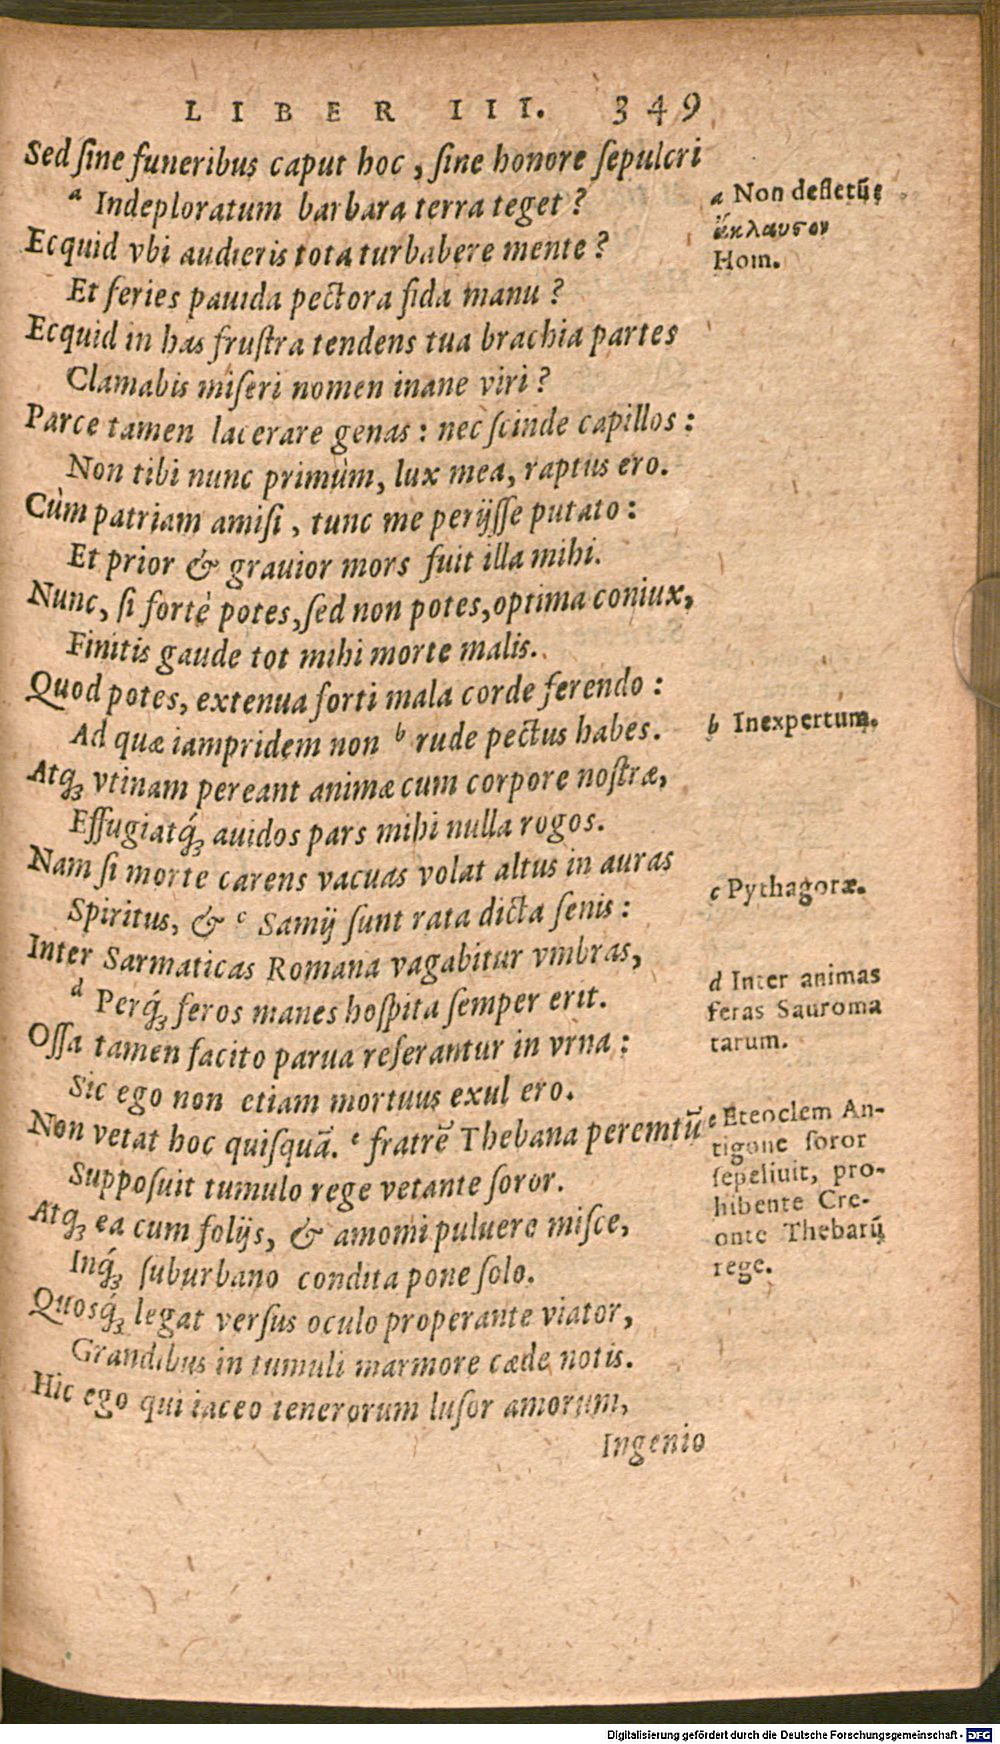 LIBER III. 349
Sed ſine funeribus caput hoc, ſine honore ſepulcri
a Indeploratum barbara terra teget?
Ecquid vbi audieris tota turbabere mente?
Et feries pauida pectora fida manu?
Ecquid in has fruſtra tendens tua brachia partes
Clamabis miſeri nomen inane viri?
Parce tamen lacerare genas: nec ſcinde capillos:
Non tibi nunc primùm, lux mea, raptus ero.
Cùm patriam amiſi, tunc me perijſſe putato:
Et prior & grauior mors fuit illa mihi.
Nunc, ſi fortè potes, ſed non potes, optima coniux,
Finitis gaude tot mihi morte malis.
Quod potes, extenua forti mala corde ferendo:
Ad quæ iampridem non b rude pectus habes.
Atq́ꝫ vtinam pereant animæ cum corpore noſtræ,
Effugiatq́ꝫ auidos pars mihi nulla rogos.
Nam ſi morte carens vacuas volat altus in auras
Spiritus, & c Samij ſunt rata dicta ſenis:
Inter Sarmaticas Romana vagabitur vmbras,
d Perq́ꝫ feros manes hoſpita ſemper erit.
Oſſa tamen facito parua referantur in vrna:
Sic ego non etiam mortuus exul ero.
Non vetat hoc quiſquã. e fratrẽ Thebana peremtũ
Suppoſuit tumulo rege vetante ſoror.
Atq́ꝫ ea cum folijs, & amomi puluere miſce,
Inq́ꝫ ſuburbano condita pone ſolo.
Quosq́ꝫ legat verſus oculo properante viator,
Grandibus in tumuli marmore cæde notis.
Hic ego qui iaceo tenerorum luſor amorum,
Ingenio
a Non defletũ
ἄκλαυστον
Hom.
b Inexpertum.
c Pythagoræ.
d Inter animas
feras Sauroma
tarum.
e Eteoclem An-
tigone ſoror
ſepeliuit, pro-
hibente Cre-
onte Thebarũ
rege.
Digitalisierung gefördert durch die Deutsche Forschungsgemeinschaft - DFG